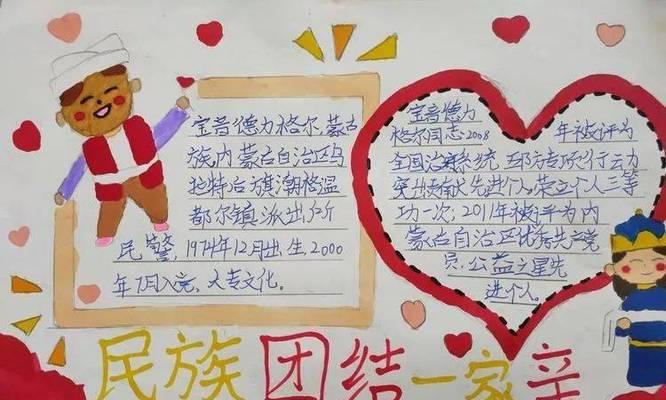 宝音德力格尔,蒙古
族,内蒙古自治区乌
拉特后旗潮格温
都尔镇派出所
民警,1974年12月出生,2000
年7月入党,大专文化。
宝音德力
格尔同志:2008 年被评为
全国治 系统 专项行动
突出贡献先进个人,荣立个人三等
功一次;2011年被评为内
蒙古自治区优秀共产党
员,公益之星先
进个人。
民族团结一家亲